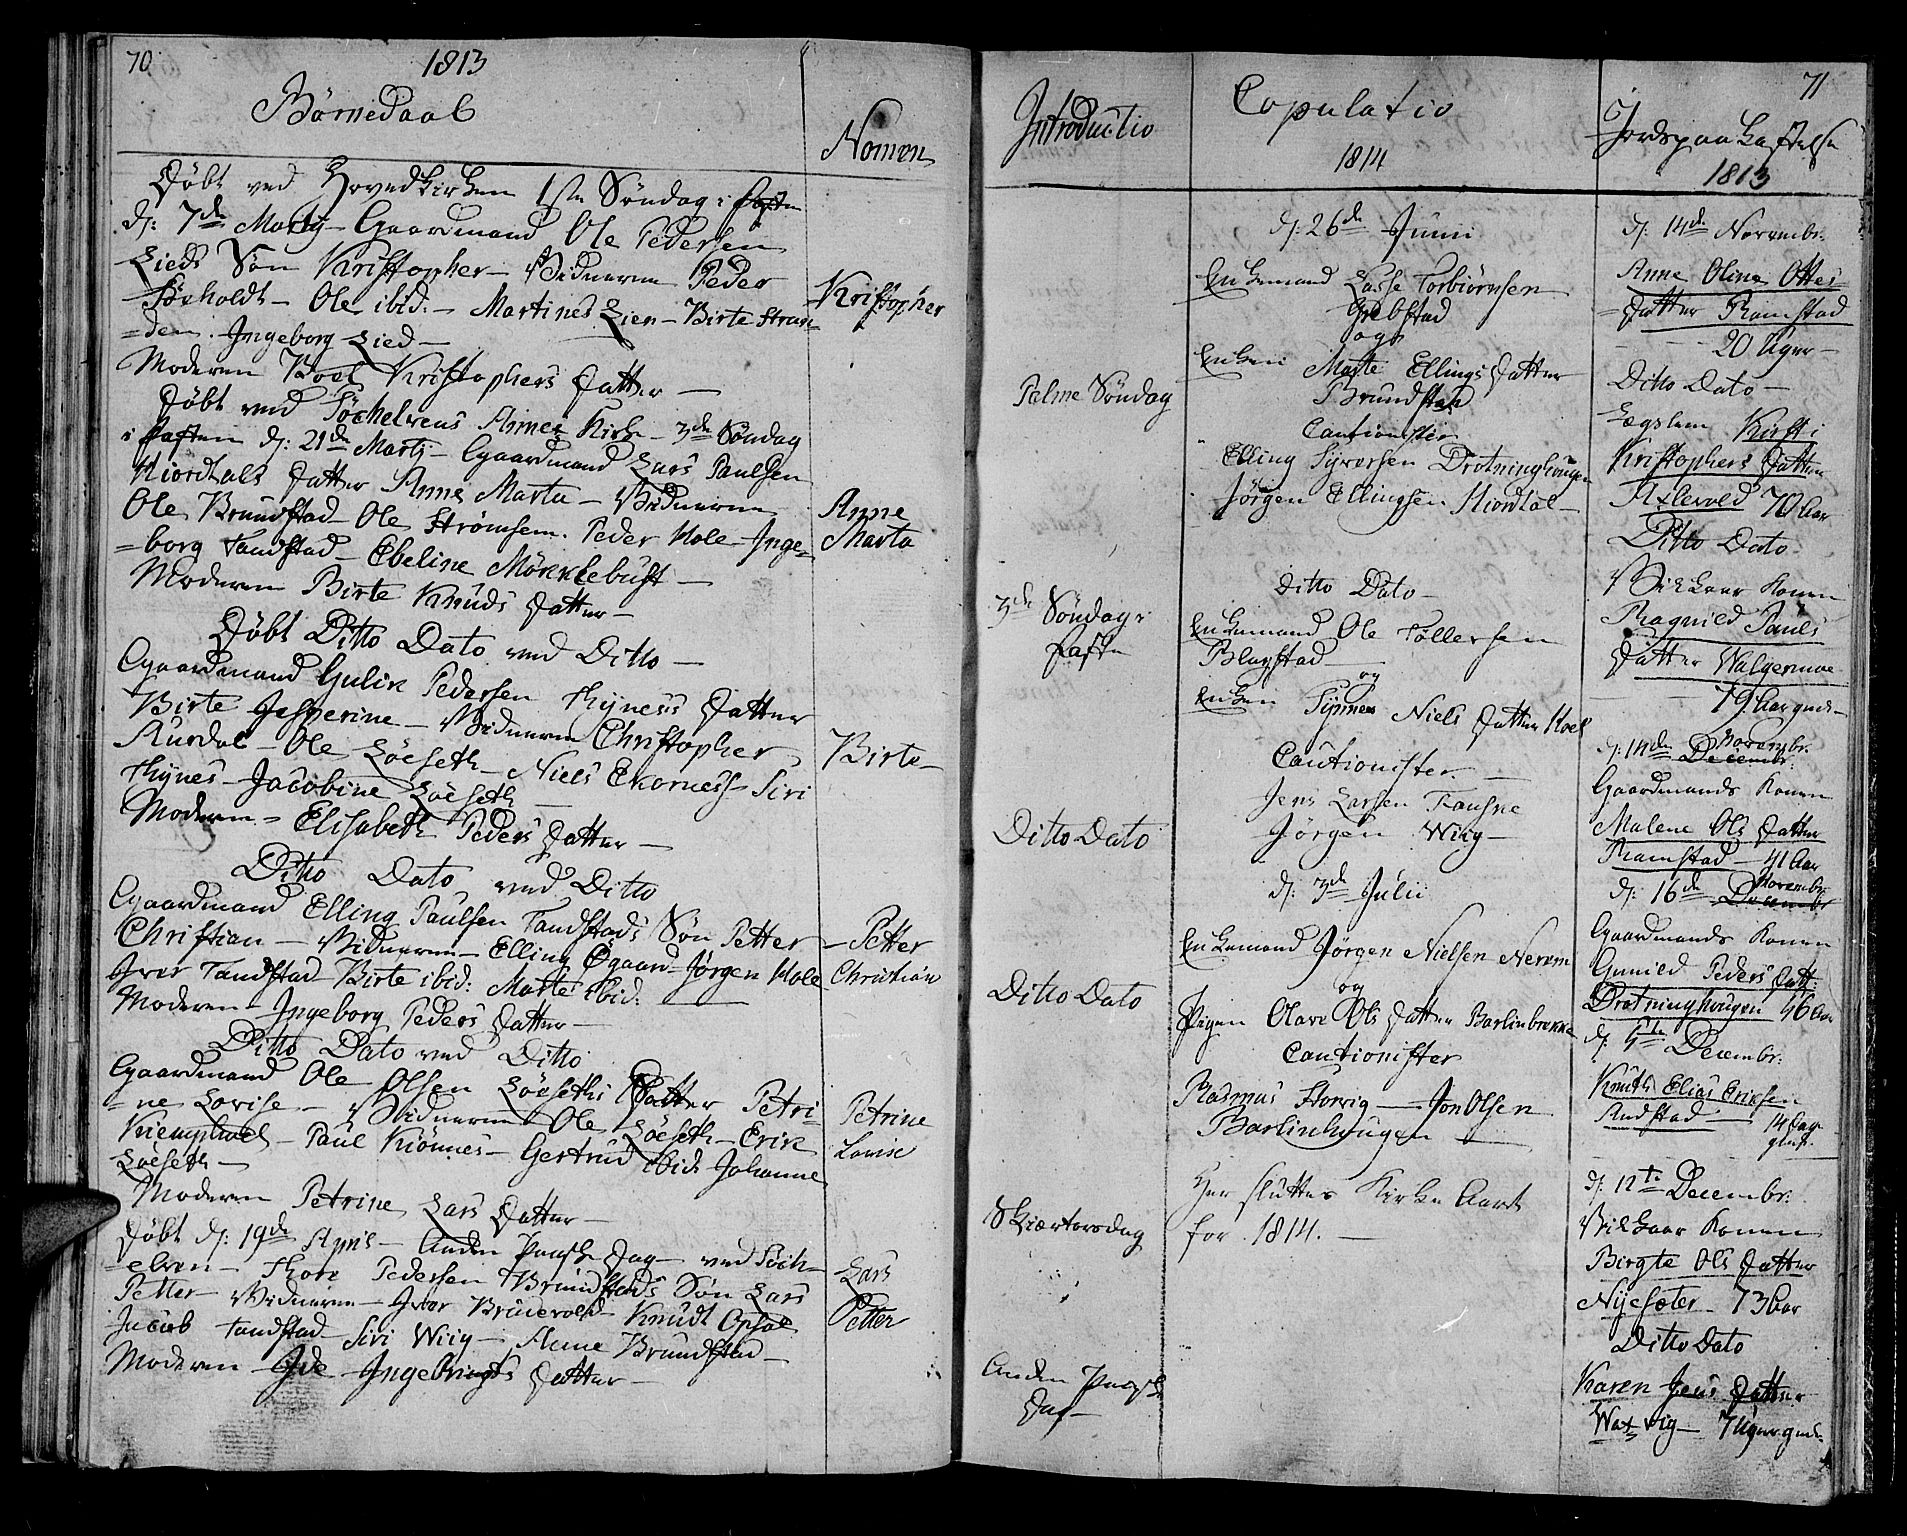 70
1813
Børnedaab
Nomen
Døbt ved Hovedkirken 1ste Søndag i Fasten
d: 7de Martj – Gaardmand Ole Pedersen
Lieds Søn Kristopher – Vidnerne Peder
Ole ibid. – Martines Lien – Birte Stran-
=den. Ingeborg Lied –
Moderen Boel Kristophers Datter –
Kristopher
Døbt ved Søchelvens Annex Kirke – 3de Søndag
i Fasten d: 21de Martj – Gaardmand Lars Paulsen
Hiordhals Datter Anne Marta – Vidnerne
Ole Brundstad – Ole Strømsem. Peder Hole – Inge-
=borg Tandstad – Ebeline Mørklebust –
Moderen Birte Knuds Datter –
Anne
Marta
Døbt Ditto Dato ved Ditto –
Gaardmand Gulik Pedersen Hynes's Datter
Birte Jesperine – Vidnerne Christopher
Aurdal – Ole Løeseth – Niels Ekorness – Siri
Hynes – Jacobine Løeseth –
Moderen – Elisabeth Peders Datter –
Birte
Ditto Dato ved Ditto
Gaardmand Elling Paulsen Tandstads Søn Petter
Christian – Vidnerne – Elling Øgaard – Jørgen Hole
Iver Tandstad – Birte ibid: Marte ibid:
Moderen – Ingeborg Peders Datter –
Petter
Christian
Ditto Dato ved Ditto
Gaardmand Ole Olsen Løeseths Datter Petri-
=ne Lovise – Vidnerne Ole Løeseth – Erik
Kiemphoel – Paul Kiønnes – Gertrud ibid: Johanne
Løeseth –
Moderen Petrine Lars Datter –
Petrine
Lovise
Døbt d: 19de April – Anden Paaske Dag – ved Søch-
=elven – Thore Pedersen Brundstads Søn Lars
Petter – Vidnerne – Iver Brunevold – Knudt Opsal
Jacob Tandstad – Siri Wiig – Anne Brundstad –
Moderen – Ingebrigts Datter –
Lars
Petter
71
Introductio
Palme Søndag
3de Søndag i
Faste
Ditto Dato
Ditto Dato
Skiærtorsdag
Anden Paaske
Dag –
Copulatio
1814
d: 26de Junii
Enkemand Lasse Torbiørnsen
Grebstad
og
Enken Marte Ellings Datter
Brundstad
Cautionister
Elling Syversen Drotninghougen
Jørgen Ellingsen Hiordhol –
Ditto Dato –
Enkemand Ole Tollersen
Blagstad –
og
Enken Synnes Niels Datter Hoel
Cautionister –
Jens Larsen Fauske
Jørgen Wiig –
d: 3de Julii
Enkemand Jørgen Nielsen Nerem
og
Pigen Olave Ols Datter Barlinbrekke
Cautionister
Rasmus Storvig – Jon Olsen
Barlinhougen –
Her sluttes Kirke Aaret
for 1814. –
Jordspaakastelse
1813
d: 14de Novembr.
Anne Oline Ottes
=Datter Ramstad
20 Uger –
Ditto Dato –
Lægslem Kirsti
Kristophers Datter
Axlevold 70 Aar
Ditto Dato –
Vilkaar Konen
Ragnild Pauls
Datter Walgermoe
79 Aar gml –
d: 14de Novembr.
Decembr:
Gaardmands Konen
Malene Ols Datter
Ramstad – 41 Aar
d: 16de Novembr.
Decembr
Gaardmands Konen
Gunild Peders Datt:
Drotninghougen 46 Aar
d: 5te Decembr:
Knuth Elias Eriksen
Andstad – 14 Dage
gml.
d: 12te Decembr:
Vilkaar Konen
Birgte Ols Datter
Nysæter – 73 Aar
Ditto Dato
Karen Jens Datter
Watvig – 7 Uger gml.